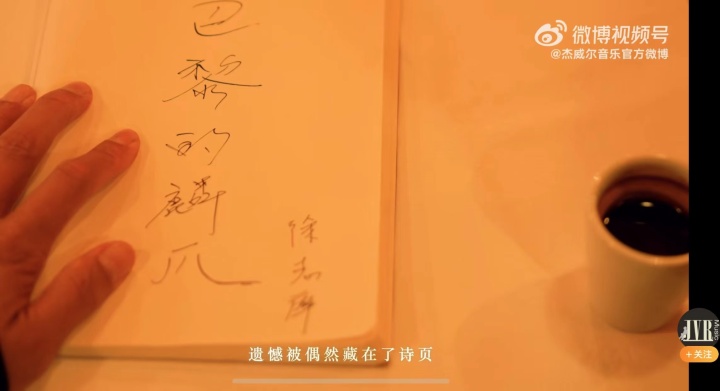 微博视频号
@杰威尔音乐官方微博
巴黎的麟爪
徐志摩
遗憾被偶然藏在了诗页
JVR Music
+关注